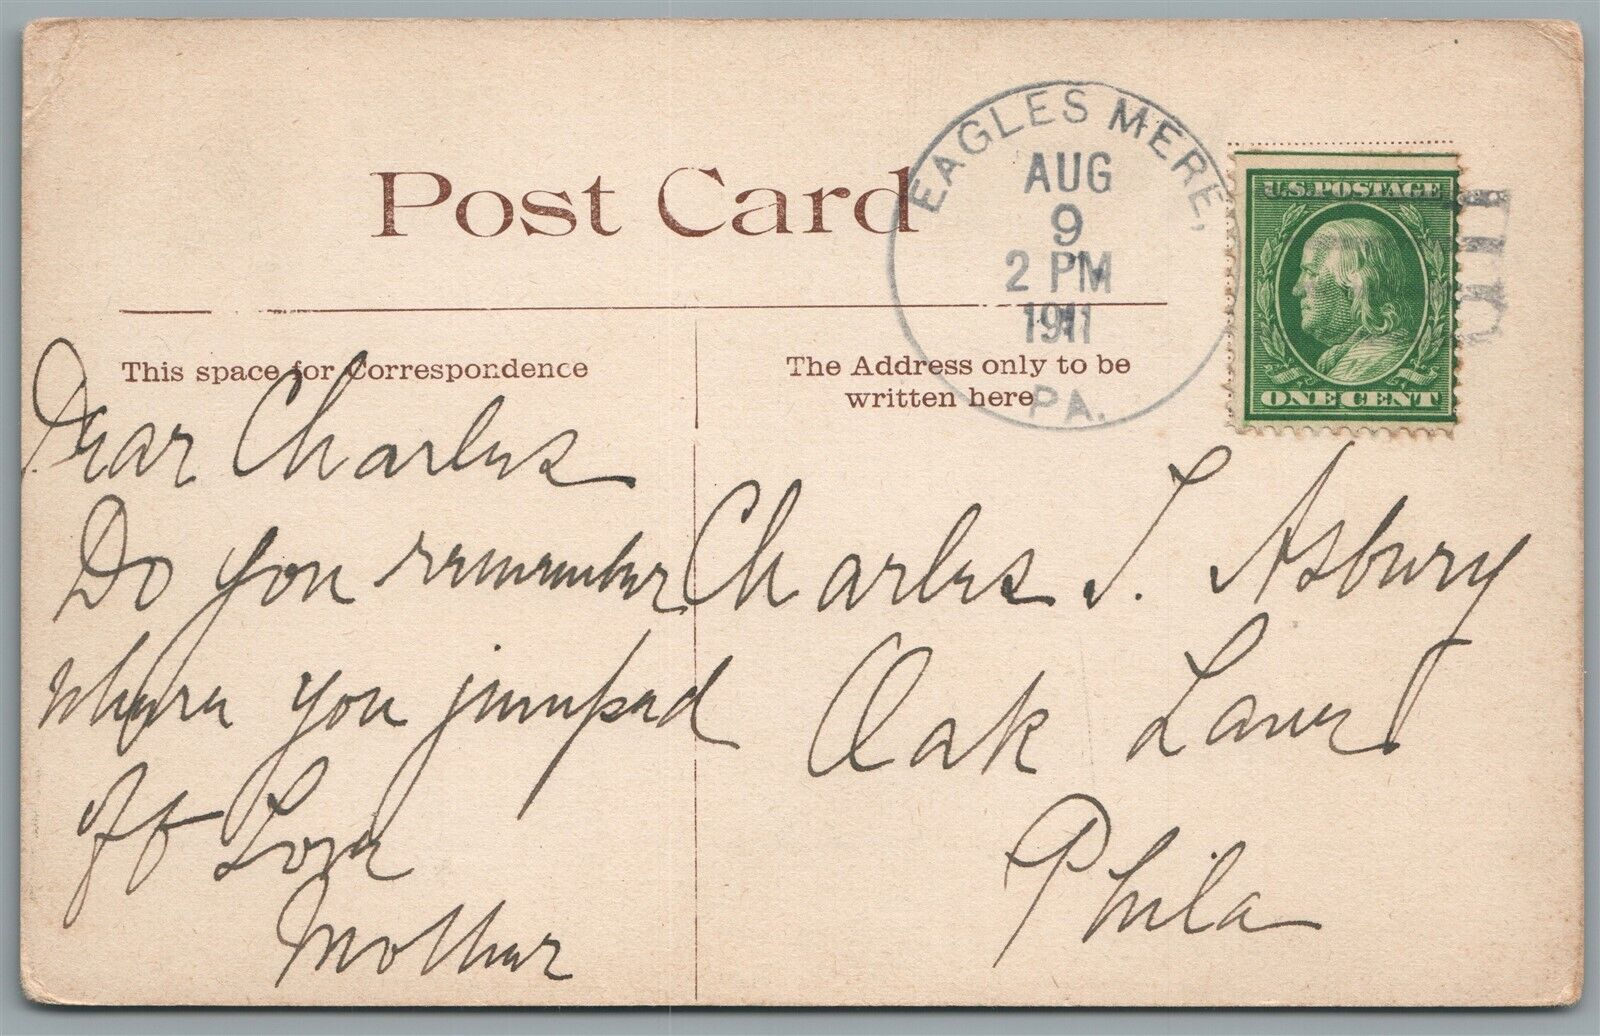 Post Card
EAGLES MERE,
AUG
9
2 PM
1911
PA.
U.S. POSTAGE
ONE CENT
This space for Correspondence
The Address only to be
written here
Dear Charles
Do you remember
where you jumped
off Love
Mother
Charles T. Asbury
Oak Lane
Phila